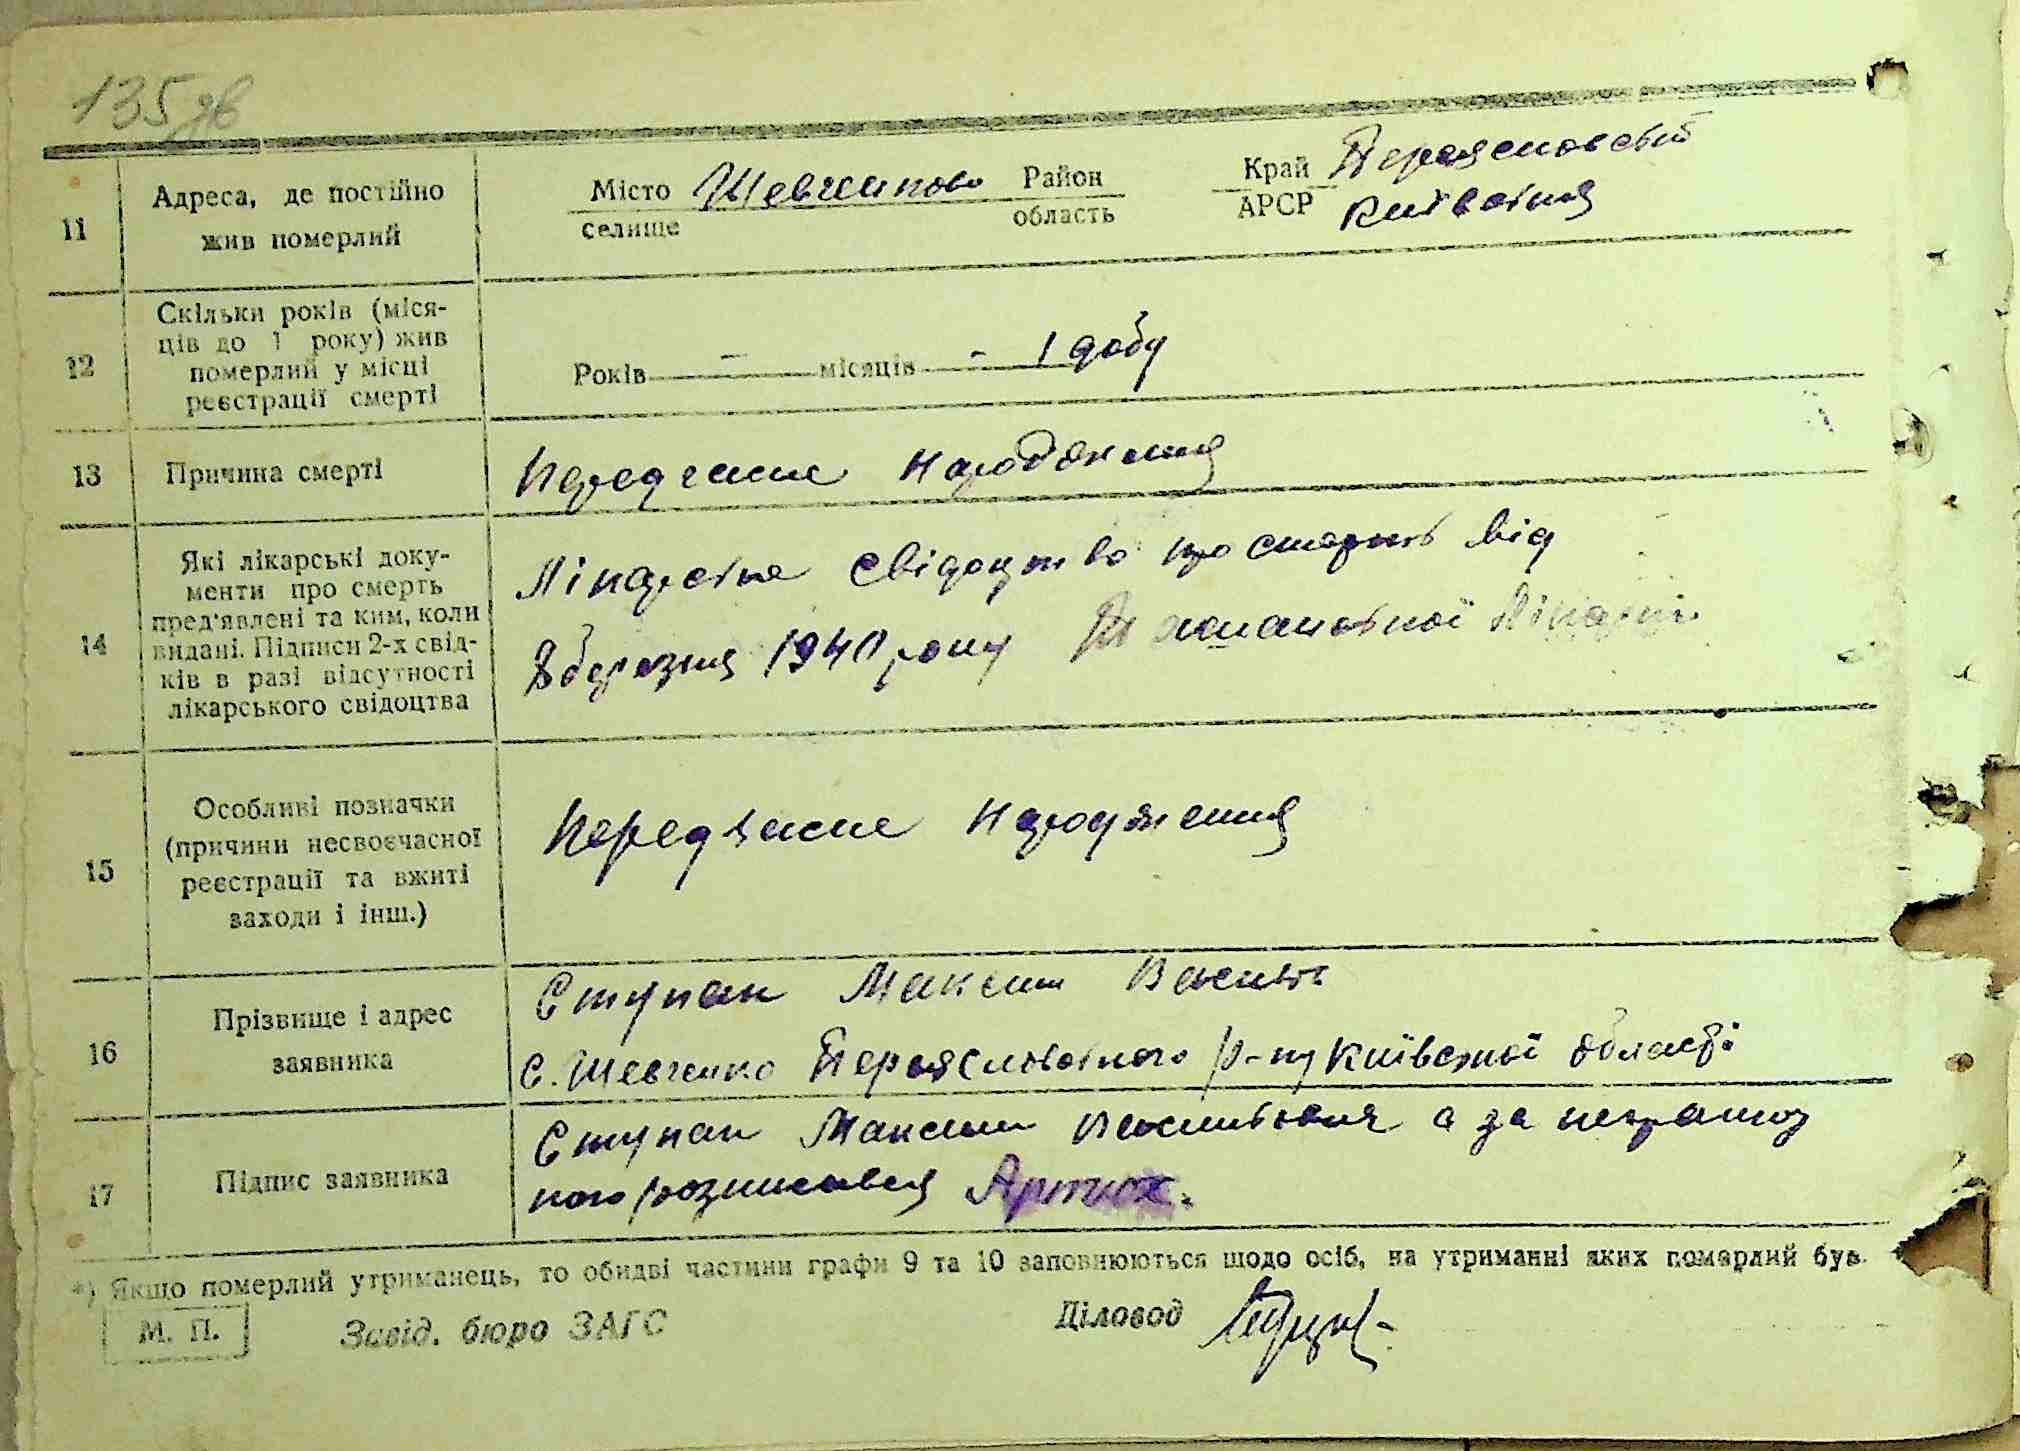 135 зв
11 Адреса, де постійно жив померлий
Місто Шевченково Район Край Переяславський
селище область АРСР Київська
12 Скільки років (міся-
ців до 1 року) жив
померлий у місці
реєстрації смерті
Років — місяців - 1 добу
13 Причина смерті Передчасне народження
14 Які лікарські доку-
менти про смерть
пред'явлені та ким, коли
видані. Підписи 2-х свід-
ків в разі відсутності
лікарського свідоцтва
Лікарське свідоцтво про смерть від
8 березня 1940 року
15 Особливі позначки
(причини несвоєчасної
реєстрації та вжиті
заходи і інш.)
Передчасне народження
16 Прізвище і адрес
заявника
Ступак Максим Василь
с. Шевченко Переяславського р-ну Київської області
17 Підпис заявника
Ступак Максим Васильович а за неграмот
ного розписався Артюх.
*) Якщо померлий утриманець, то обидві частини графи 9 та 10 заповнюються щодо осіб, на утриманні яких померлий був.
М. П. Завід. бюро ЗАГС Діловод